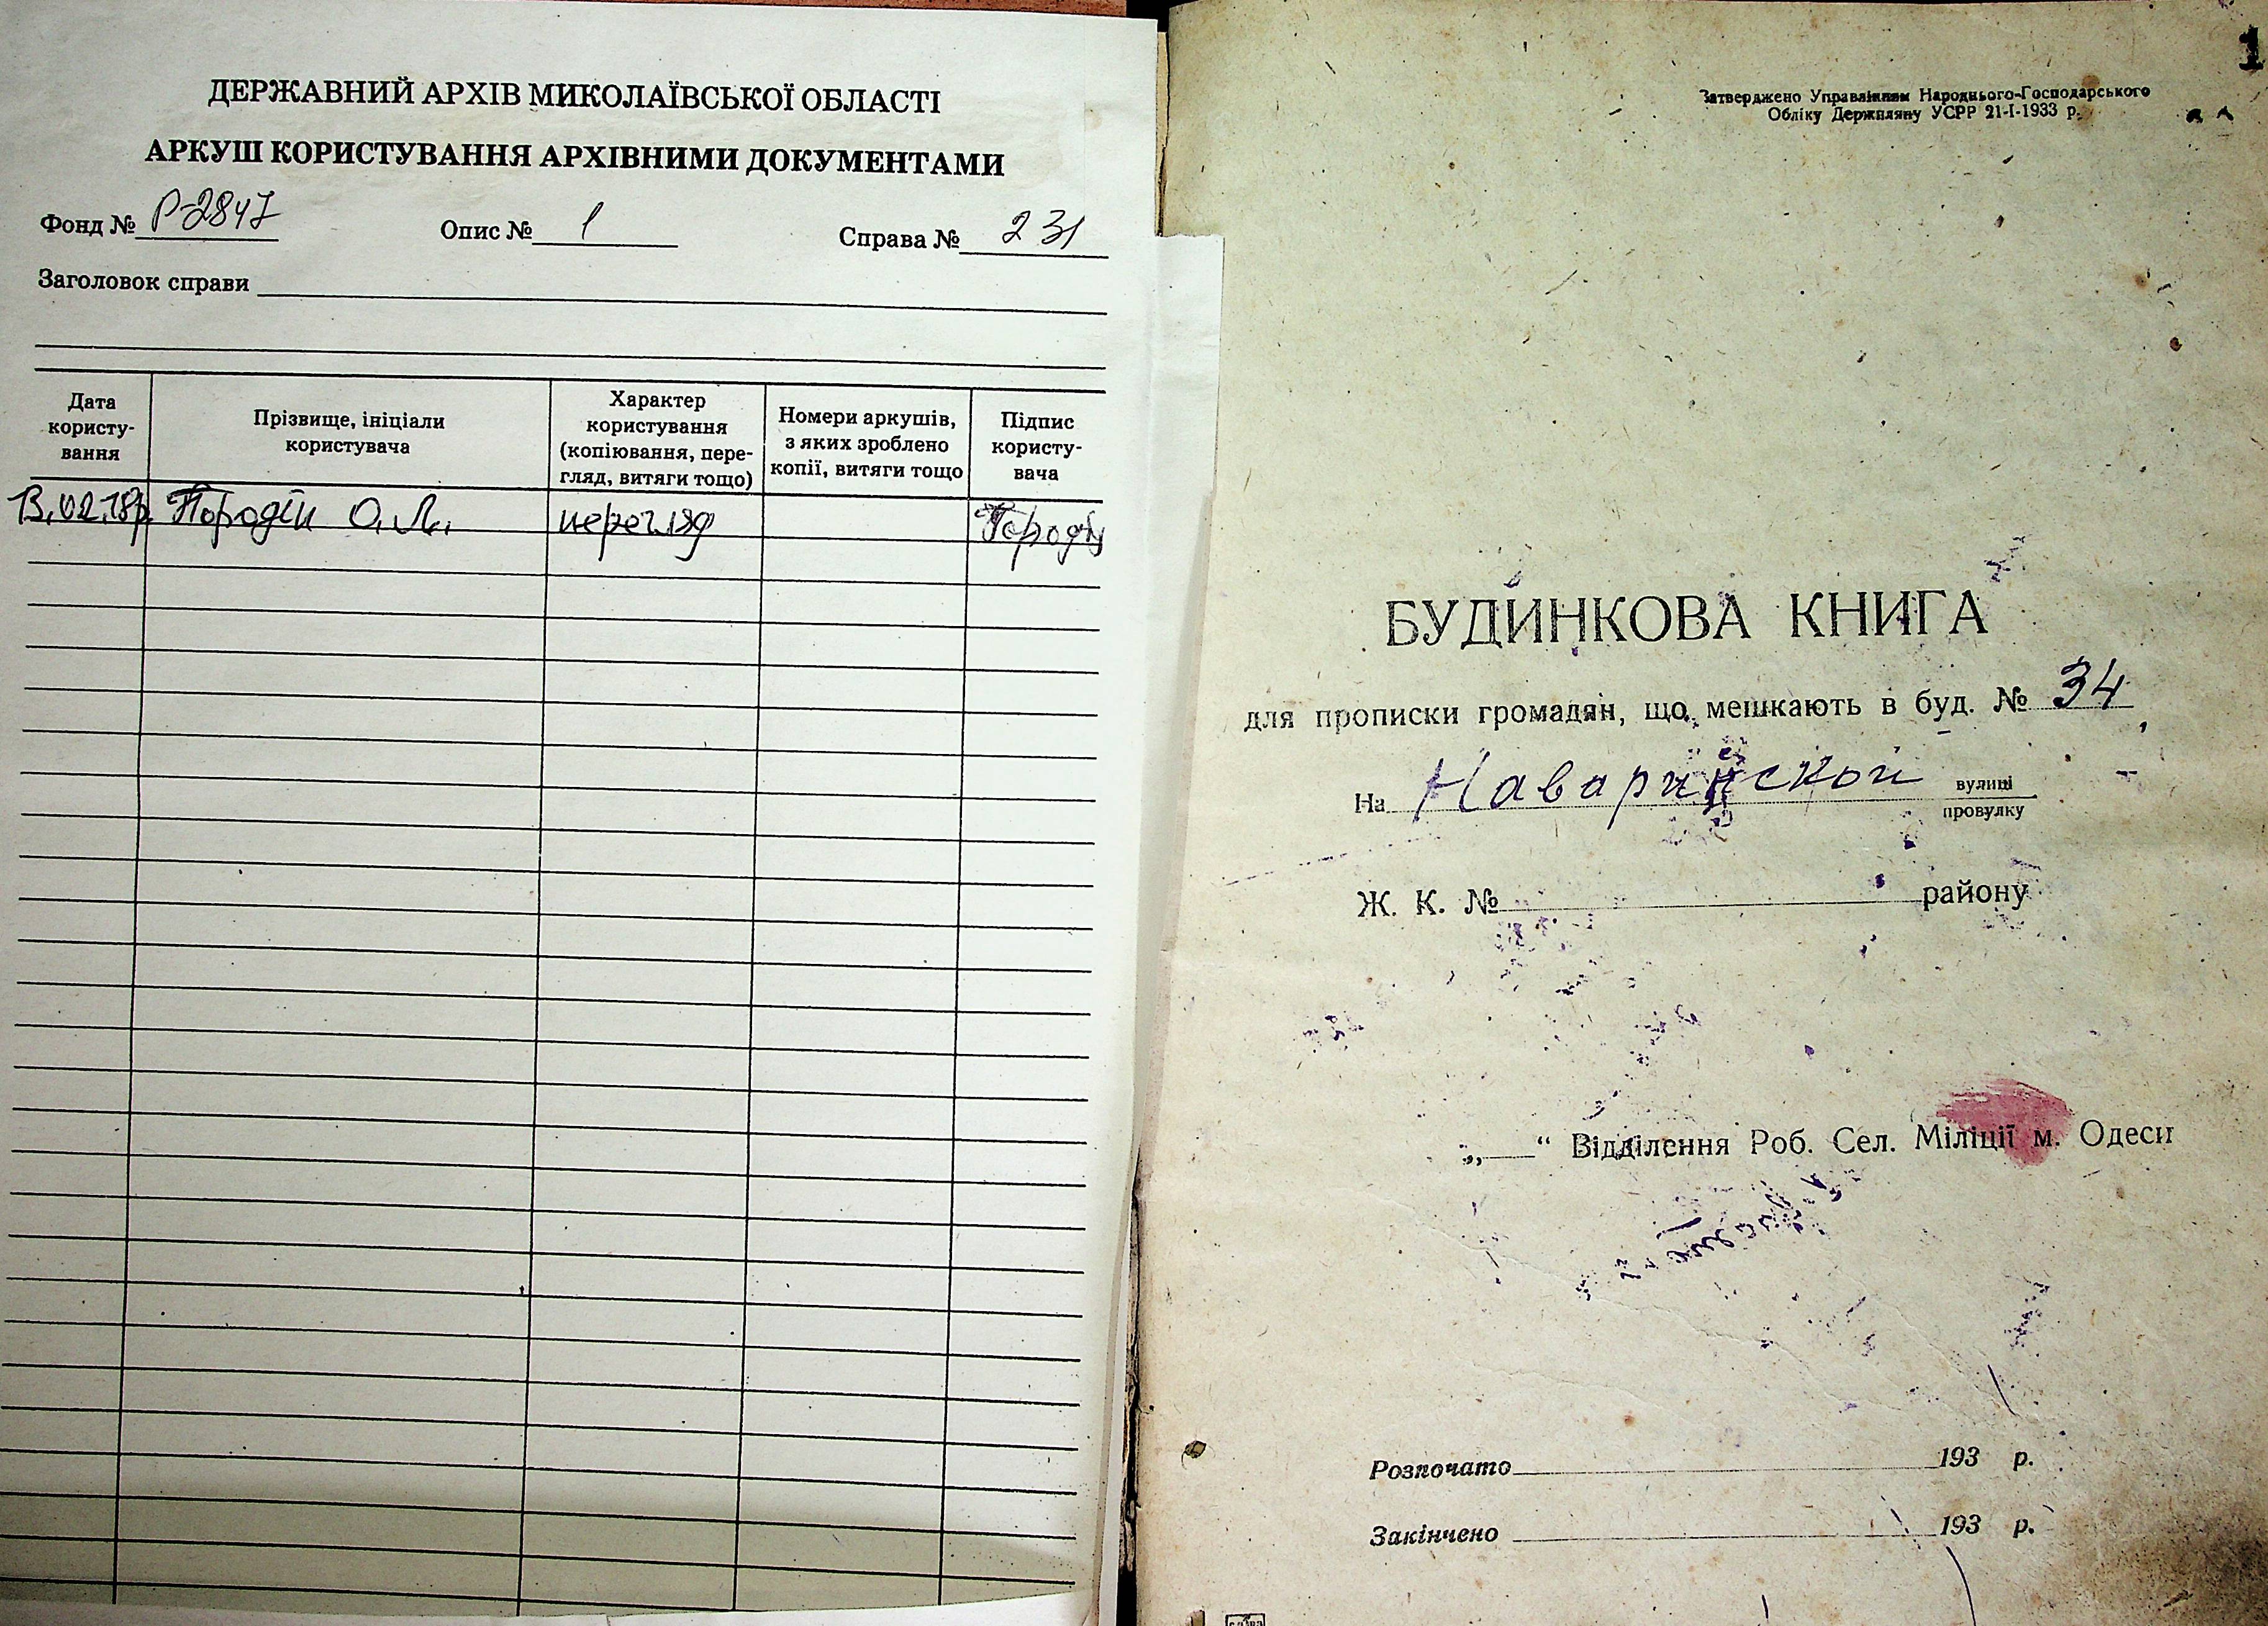 ДЕРЖАВНИЙ АРХІВ МИКОЛАЇВСЬКОЇ ОБЛАСТІ
АРКУШ КОРИСТУВАННЯ АРХІВНИМИ ДОКУМЕНТАМИ
Фонд № Р-2847 Опис № 1 Справа № 231
Заголовок справи
Дата користу-вання
Прізвище, ініціали користувача
Характер користування (копіювання, пере-гляд, витяги тощо)
Номери аркушів, з яких зроблено копії, витяги тощо
Підпис користу-вача
13.02.18р. О.Л. перегляд
1
Затверджено Управлінням Народнього-Господарського
Обліку Держпляну УСРР 21-I-1933 р.
БУДИНКОВА КНИГА
для прописки громадян, що мешкають в буд. № 34
На Наваринской вулиці
провулку
Ж. К. № району
„ “ Відділення Роб. Сел. Міліції м. Одеси
Розпочато 193 р.
Закінчено 193 р.